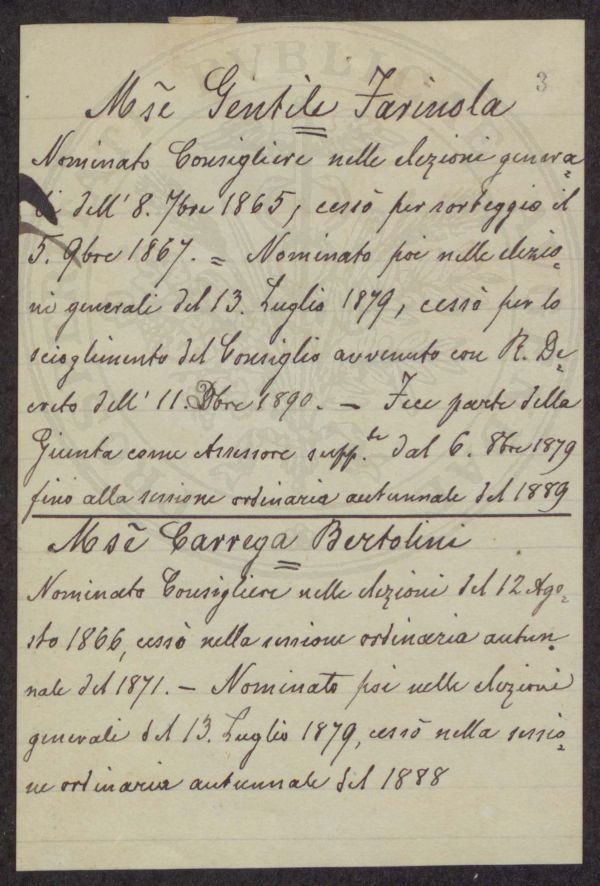 3
Mse Gentile Farinola
Nominato Consigliere nelle elezioni genera=
li dell' 8. 7bre 1865, cessò per sorteggio il
5. 9bre 1867. = Nominato poi nelle elezio=
ni generali del 13. Luglio 1879, cessò per lo
scioglimento del Consiglio avvenuto con R. De=
creto dell' 11. Xbre 1890. — Fece parte della
Giunta come Assessore supp.te dal 6. 8bre 1879
fino alla sessione ordinaria autunnale del 1889
Mse Carrega Bertolini
Nominato Consigliere nelle elezioni del 12 Ago=
sto 1866, cessò nella sessione ordinaria autun=
nale del 1871. — Nominato poi nelle elezioni
generali del 13. Luglio 1879, cessò nella sessio=
ne ordinaria autunnale del 1888